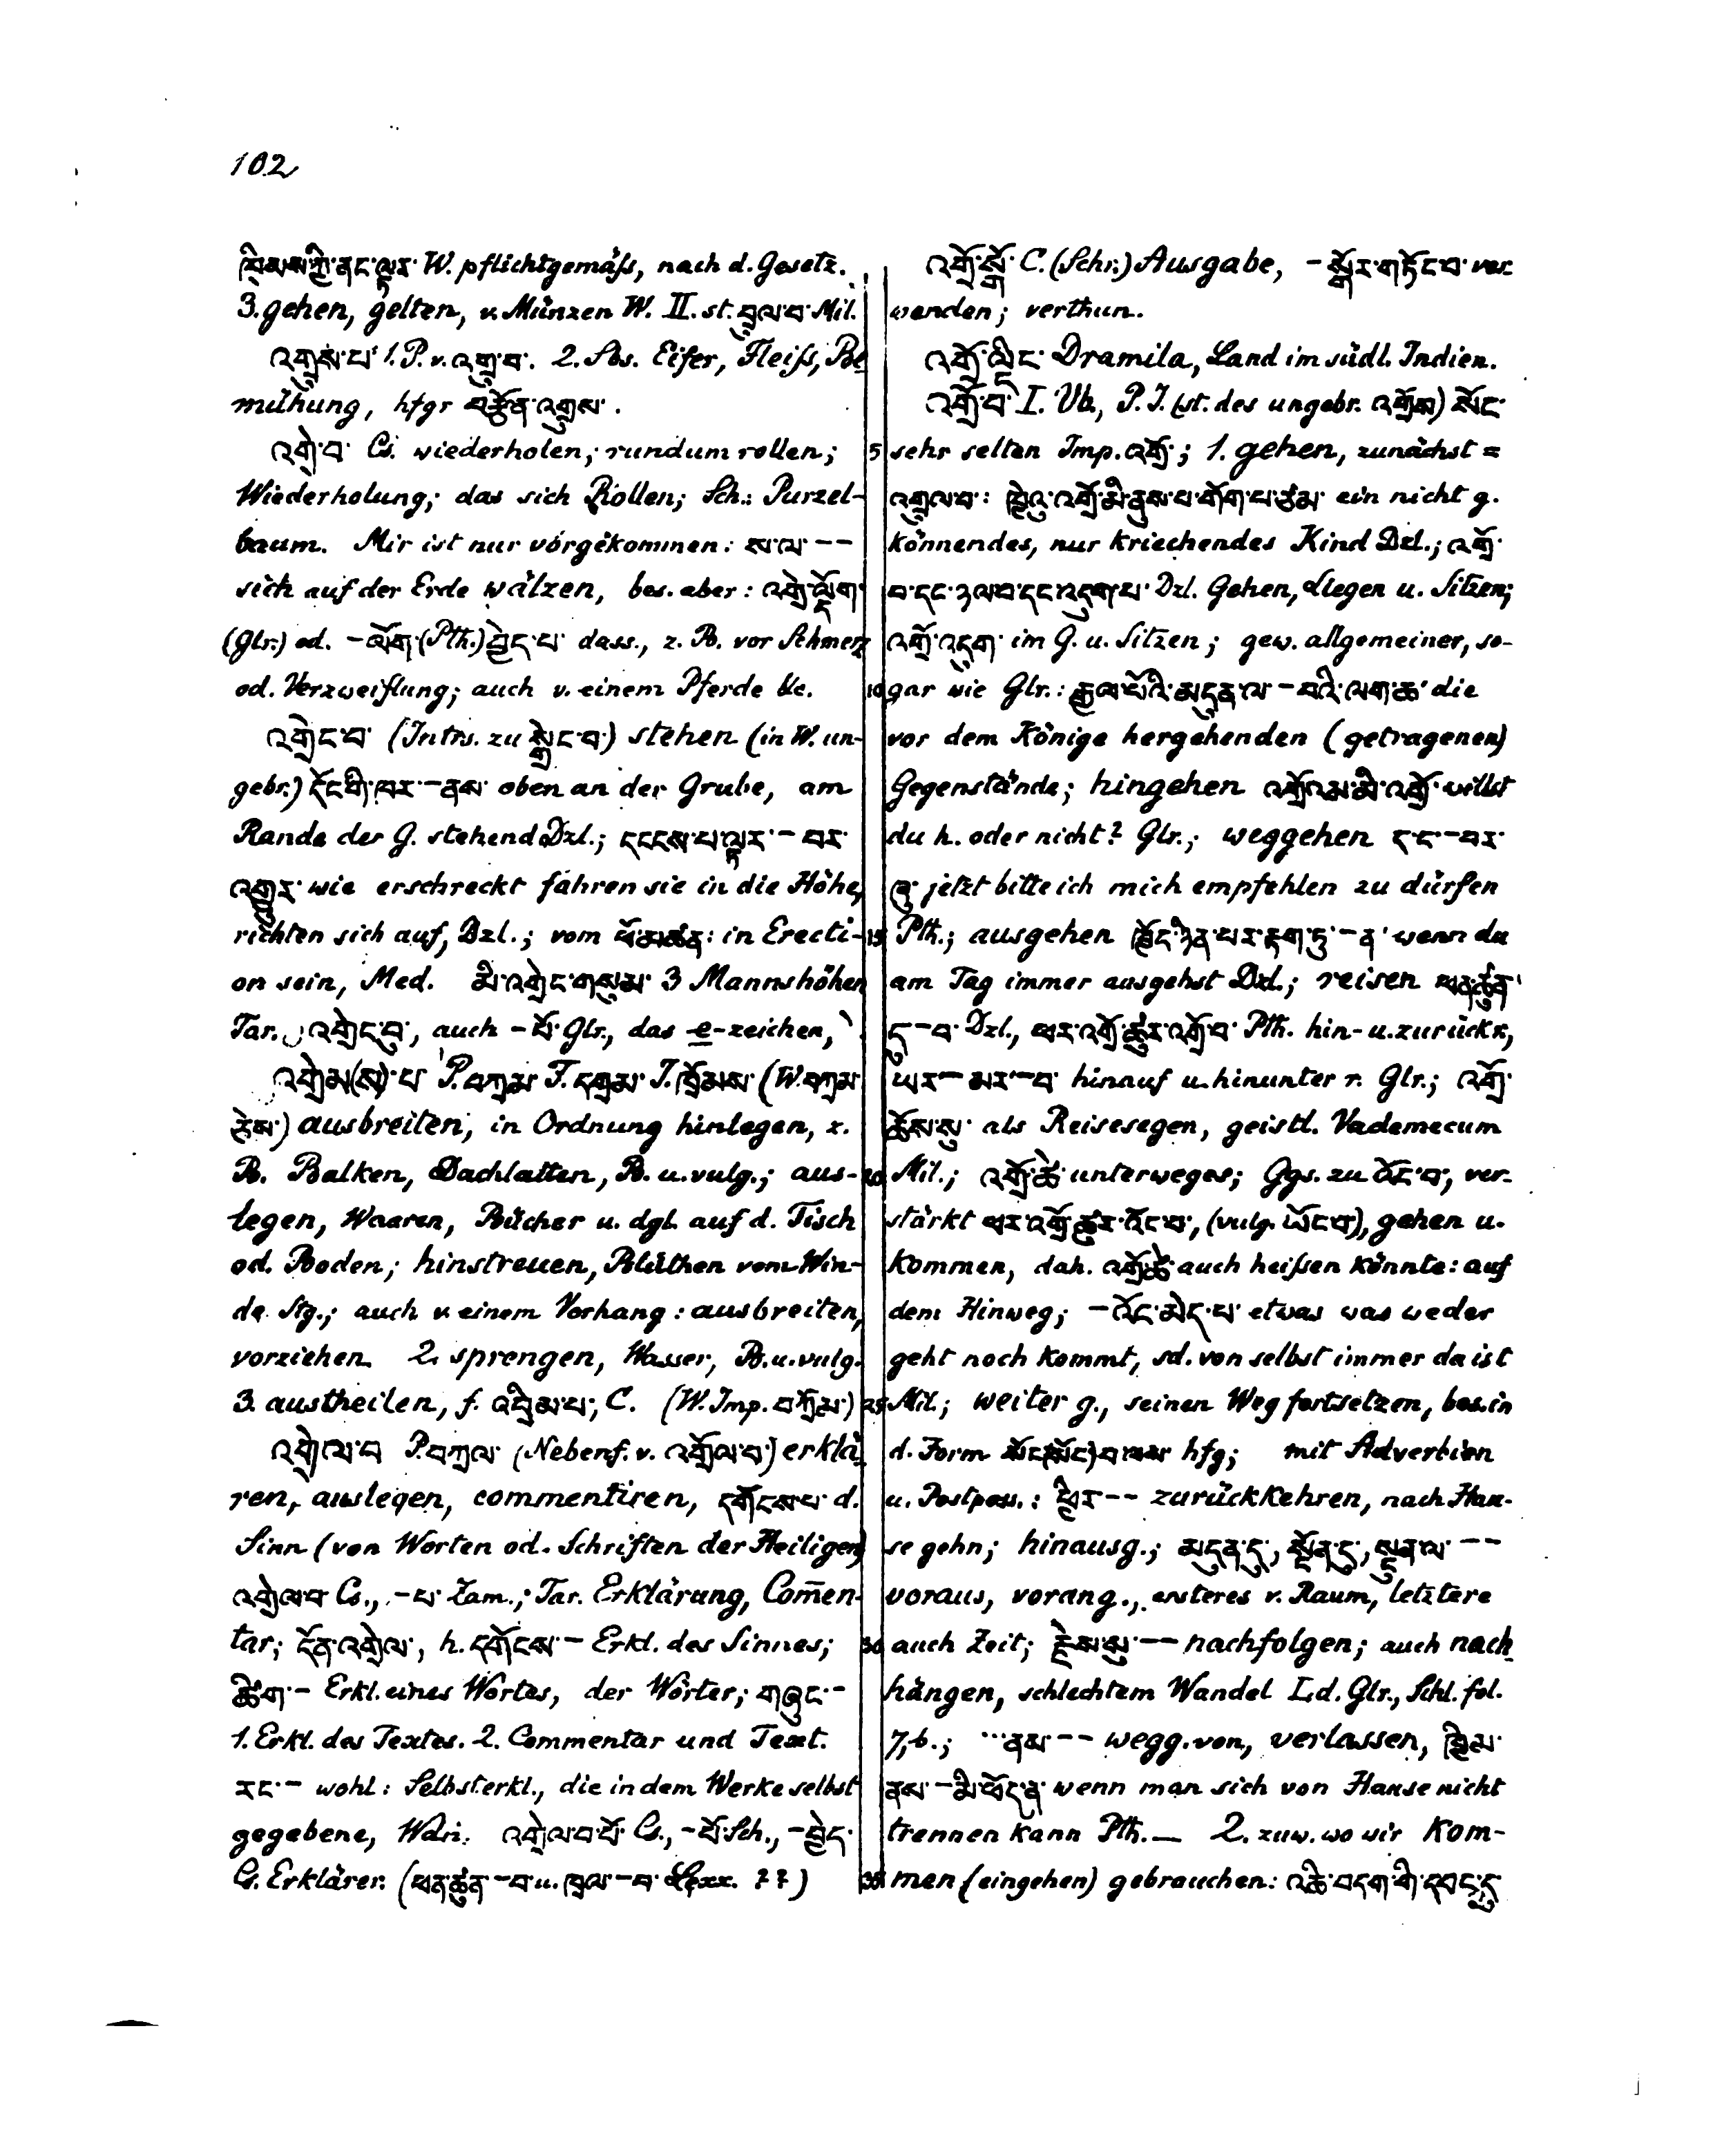 102
ཁྲིམས་ཀྱི་ནང་ལྟར་ W. pflichtgemäſs, nach d. Gesetz.
3. gehen, gelten, v. Münzen W. II. st. བྲལ་བ་ Mil.
འགྲུས་པ་ 1. P. v. འགྲུ་བ་. 2. Sbs. Eifer, Fleiſs, Be
mühung, hfgr བརྩོན་འགྲུས་.
འགྲེ་བ་ Cs. wiederholen; rundum rollen;
Wiederholung; das sich Rollen; Sch.: Purzel-
baum. Mir ist nur vorgekommen: ས་ལ་ --
sich auf der Erde wälzen, bes. aber: འགྲེ་ལྡོག་
(Glr.) od. -ལོག་ (Pth.) བྱེད་པ་ dass., z. B. vor Schmerz
od. Verzweiflung; auch v. einem Pferde &c.
འགྲེང་བ་ (Intrs. zu སྒྲེང་བ་) stehen (in W. un-
gebr.) དོང་གི་ཁར་ -ནས་ oben an der Grube, am
Rande der G. stehend Dzl.; དངངས་པ་ལྟར་ - བར་
འགྱུར་ wie erschreckt fahren sie in die Höhe,
richten sich auf, Dzl.; vom ཕོ་མཚན་: in Erecti-
on sein, Med. མི་འགྲེང་གསུམ་ 3 Mannshöhen
Tar. འགྲེང་བུ་, auch -པོ་ Glr., das e-zeichen,
འགྲེམ(ས)་པ་ P. བཀྲམ་ F. དགྲམ་ I. ཁྲོམས་ (W. བཀྲམ་
ཅེས་) ausbreiten; in Ordnung hinlegen, z.
B. Balken, Dachlatten, B. u. vulg.; aus-
legen, Waaren, Bücher u. dgl. auf d. Tisch
od. Boden; hinstreuen, Blüthen vom Win-
de Stg.; auch v. einem Vorhang: ausbreiten,
vorziehen 2. sprengen, Wasser, B. u. vulg.
3. austheilen, f. འབྲིམ་པ་, C. (W. Imp. བཀྲོམ་)
འགྲེལ་བ་ P. བཀྲལ་ (Nebenf. v. འགྲོལ་བ་) erklä
ren, auslegen, commentiren, དགོངས་པ་ d.
Sinn (von Worten od. Schriften der Heiligen)
འགྲེལ་བ་ Cs., -པ་ Zam.; Tar. Erklärung, Com̄en-
tar; དོན་འགྲེལ་, h. དགོངས་ - Erkl. des Sinnes;
ཚིག་ - Erkl. eines Wortes, der Wörter; གཞུང་ -
1. Erkl. des Textes. 2. Commentar und Text.
རང་ - wohl: Selbsterkl., die in dem Werke selbst
gegebene, Was. འགྲེལ་བ་པོ་ Cs., -པོ་ Sch., -བྱེད་
Cs. Erklärer. (ཕན་ཚུན་ -བ་ u. ཁྲལ་ -བ་ Lexx. ??)
འགྲོ་སྒོ་ C. (Schr.) Ausgabe, - སྒོར་གཏོང་བ་ ver
wenden; verthun.
འགྲོ་ལྡིང་ Dramila, Land im südl. Indien.
འགྲོ་བ་ I. Vb., P. I. (st. des ungebr. འགྲོས) སོང་
5 sehr selten Imp. འགྲོ་; 1. gehen, zunächst =
འགྲུལ་བ་: བྱེའུ་འགྲོ་མི་ནུས་པ་གོག་པ་ཙམ་ ein nicht g.
könnendes, nur kriechendes Kind Dzl.; འགྲོ་
བ་དང་ཉལ་བ་དང་འདུག་པ་ Dzl. Gehen, Liegen u. Sitzen;
འགྲོ་འདུག་ im G. u. Sitzen; gew. allgemeiner, so-
10 gar wie Glr.: རྒྱལ་པོའི་མདུན་ལ་ - བའི་ལག་ཆ་ die
vor dem Könige hergehenden (getragenen)
Gegenstände; hingehen འགྲོའམ་མི་འགྲོ་ willst
du h. oder nicht? Glr.; weggehen ད་ང་ -བར་
ཞུ་ jetzt bitte ich mich empfehlen zu dürfen
15 Pth.; ausgehen ཁྱོད་ཉིན་པར་རྟག་ཏུ་ -ན་ wenn du
am Tag immer ausgehst Dzl.; reisen ཕན་ཚུན་
དུ་ -བ་ Dzl., ཕར་འགྲོ་ཚུར་འགྲོ་བ་ Pth. hin- u. zurück r.,
ཡར་ - མར་ -བ་ hinauf u. hinunter r. Glr.; འགྲོ་
ཆོས་སུ་ als Reisesegen, geistl. Vademecum
20 Mil.; འགྲོ་ཚེ་ unterweges; Ggs. zu འོང་བ་, ver-
stärkt ཕར་འགྲོ་ཚུར་འོང་བ་, (vulg. ཡོང་བ་), gehen u.
kommen, dah. འགྲོ་ཚེ་ auch heiſsen könnte: auf
dem Hinweg; -འོང་མེད་པ་ etwas was weder
geht noch kommt, sd. von selbst immer da ist
25 Mil.; weiter g., seinen Weg fortsetzen, bes. in
d. Form སོང་(སོང་)བ་ལས་ hfg; mit Adverbien
u. Postposs.: ཕྱིར་ -- zurückkehren, nach Hau-
se gehn; hinausg.; མདུན་དུ་, སྔོན་དུ་, སྔུན་ལ་ --
voraus, vorang., ersteres v. Raum, letztere
30 auch Zeit; རྗེས་སུ་ -- nachfolgen; auch nach
hängen, schlechtem Wandel Ld. Glr., Schl. fol.
7, b.; ...ནས་ -- wegg. von, verlassen, ཁྱིམ་
ནས་ -མི་ཕོད་ན་ wenn man sich von Hause nicht
trennen kann Pth. — 2. zuw. wo wir kom-
35 men (eingehen) gebrauchen: འཆི་བདག་གི་དབང་དུ་